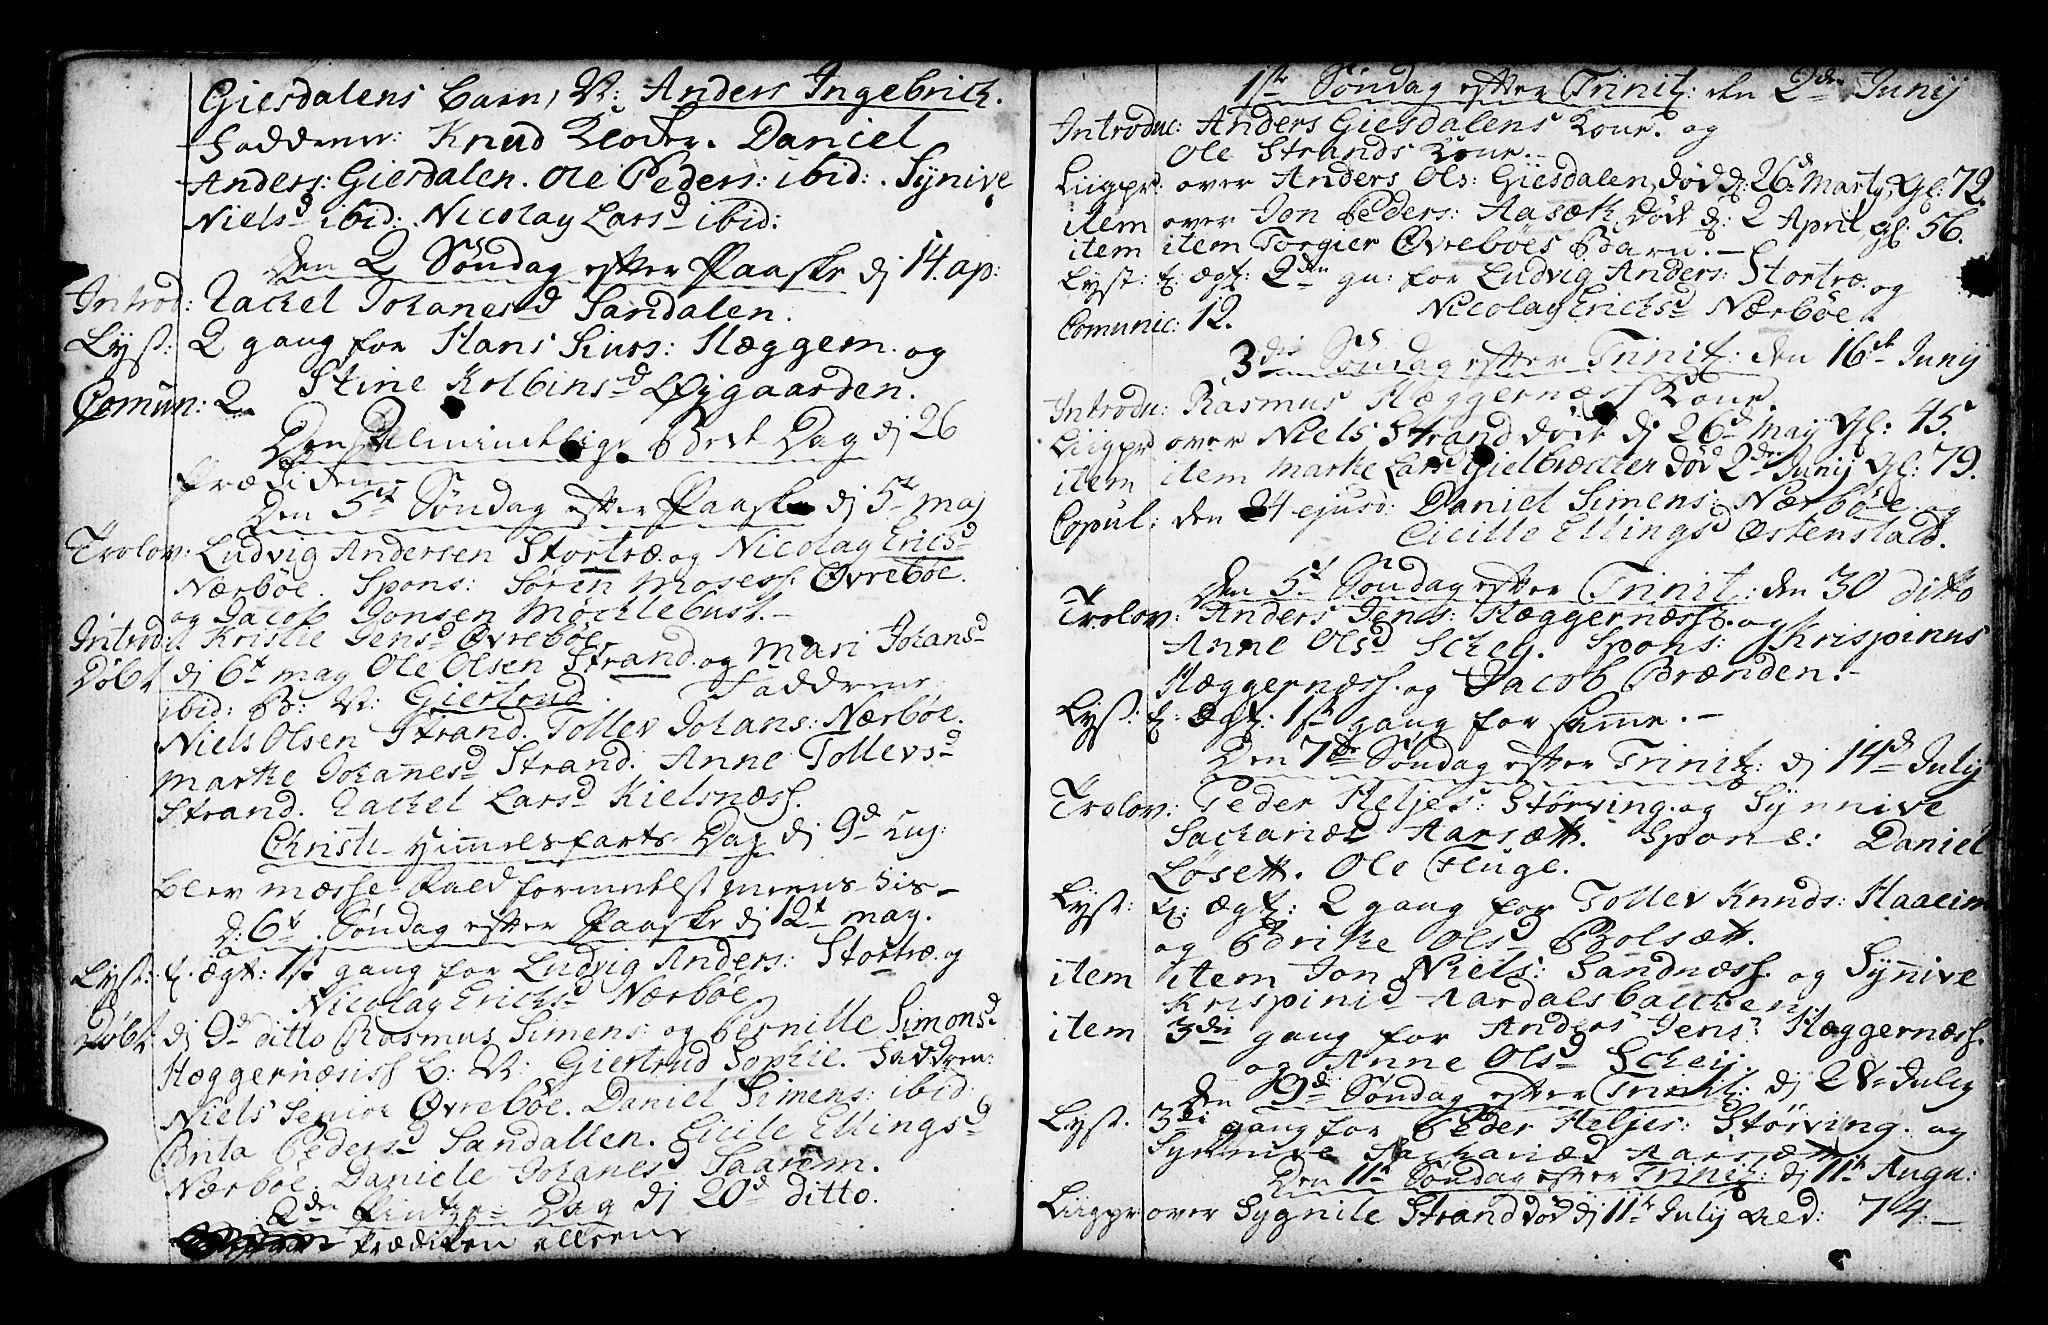 Giesdalens barn, N: Anders Ingebrict.
Faddrene: Knud Klock. Daniel
Anders: Giesdalen. Ole Peders: ibid: Synive
Nielsd ibid: Nicolay Larsd ibid:
Den 2 Søndag efter Paaske dj 14. ap:
Introd: Rachel Johanesd Sandalen.
Lyst: 2 gang for Hans Siurs: Hæggem. og
Stine Kolbinsd Øygaarden.
Comun: 2.
Den Almindelige Bede Dag dj 26
Prædiken
Den 5t Søndag efter Paaske dj 5t maj
Trolov: Ludvig Andersen Stortræ. og Nicolay Ericsd
Nærbøe. Spons: Søren Moses: Øvrebøe.
og Jacob Jonsen Mochlebust.
Introd: Kristie Jensd Øvrebøe
Døbt dj 6t may Ole Olsen Strand. og Mari Johansd
ibid: B: N: Giertrud. Faddrene
Niels Olsen Strand. Tollev Johans: Nærbøe.
Marthe Johanesd Strand. Anne Tollevsd
Strand. Rachel Larsd Kielsnæss.
Christi Himmelfarts Dag dj 9d
Blev mæsse Fald formedelst
D: 6t Søndag efter Paaske dj 12t may.
Lyst: t. ægt: 1st gang for Ludvig Anders: Stortræ og
Nicolay Erichsd Nærbøe
Døbt dj 9d ditto Rasmus Simens: og Pernille Simonsd
Hæggernæsiss B: N: Giertrud Sophie. Faddren:
Niels Senior Øvrebøe. Daniel Simens: ibid:
Brita Pedersd Sandallen. Cicile Ellingsd
Nærbøe. Daniele Johanesd Saarem.
2den Pintze Dag dj 20d ditto.
Prædiken alleene
1ste Søndag efter Trinit: den 2den Junij
Introduc: Anders Giesdalens Kone. og
Ole Strands Kone.
Liigpr: over Anders Ols: Giesdalen, død d: 26d Marty, Gl: 72.
item over Jon Peders: Aasæth, død d: 2 April, gl: 56.
item item Torgier Øvrebøes Barn. -
Lyst: t: ægt: 2den ga: for Ludvig Anders: Stortræ. og
Nicolay Erichsd Nærbøe.
Comunic: 12.
3die Søndag efter Trinit: den 16de Junij
Introdu: Rasmus Hæggernæss Kone.
Liigpr over Niels Strand død dj 26d Maij Gl: 45.
item item Marthe Larsd Gielbrechen død 2den Junij Gl: 79.
Copul: den 24 ejusd: Daniel Simens: Nærbøe og
Cicille Ellingsd Østenstad.
Den 5t Søndag efter Trinit: den 30 ditto
Trolov: Anders Jens: Hæggernæss. og
Anne Olsd Schej. Spons: Krispinus
Hæggernæss. og Jacob Brænden. -
Lyst: t: ægt: 1ste gang for same. -
Den 7de Søndag efter Trinit: dj 14d Julij
Trolov: Peder Heljes: Størving. og Synnive
Sachariæd Aarsætt. Spons: Daniel
Løsett. Ole Fluge.
Lyst: t: ægt: 2 gang for Tollev Knuds: Haaeim
og Edrike Olsd Bolsætt.
item item Jon Niels: Sandnæss. og Synive
Krispinid Aardalsbackken
item 3die gang for Anders Jens: Hæggernæss.
og Anne Olsd Schej.
Den 9d Søndag efter Trinit: dj 28 Julij
Lyst. 3di gang for Peder Heljes: Størving. og
Synnive Sachariæd Aarsætt
Den 11te Søndag efter Trinit: dj 11te Augu:
Liigpr over Sygnile Strand død dj 11te Julij Æed: 74. -